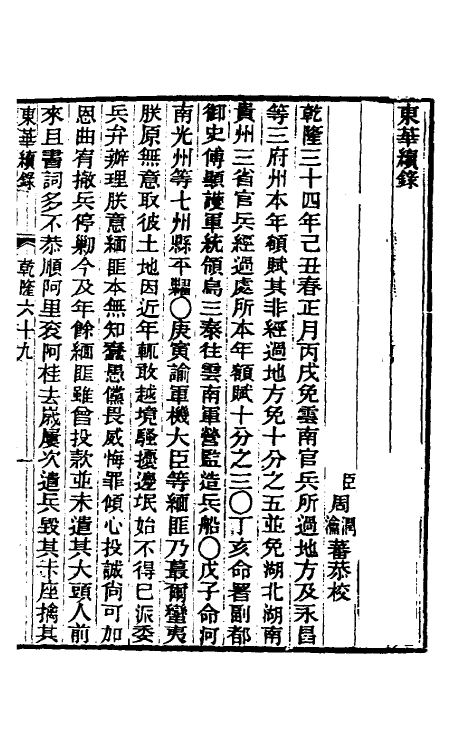 東華續錄
臣周潤蕃
周瀹蕃恭校
乾隆三十四年己丑春正月丙戌免雲南官兵所過地方及永昌
等三府州本年額賦其非經過地方免十分之五並免湖北湖南
貴州三省官兵經過處所本年額賦十分之三〇丁亥命署副都
御史傅顯護軍統領烏三泰往雲南軍營監造兵船〇戊子命河
南光州等七州縣平糶〇庚寅諭軍機大臣等緬匪乃蕞爾蠻夷
朕原無意取彼土地因近年輒敢越境騷擾邊氓始不得已派委
兵弁辦理朕意緬匪本無知蠢愚儻畏威悔罪傾心投誠尚可加
恩曲宥撤兵停勦今及年餘緬匪雖曾投款並未遣其大頭人前
來且書詞多不恭順阿里袞阿桂去歲屢次遣兵毀其卡座擒其
東華續錄 乾隆六十九 一